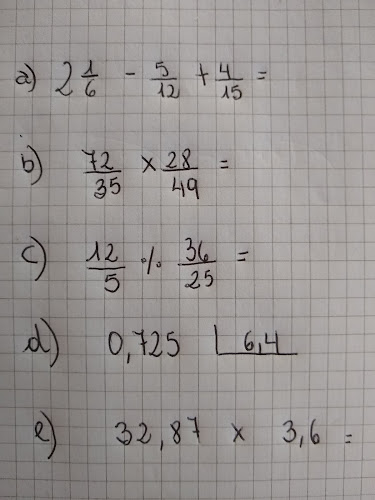 a) 2 1/6 - 5/12 + 4/15 =
b) 72/35 x 28/49 =
c) 12/5 % 36/25 =
d) 0,725 | 6,4
e) 32,87 x 3,6 =